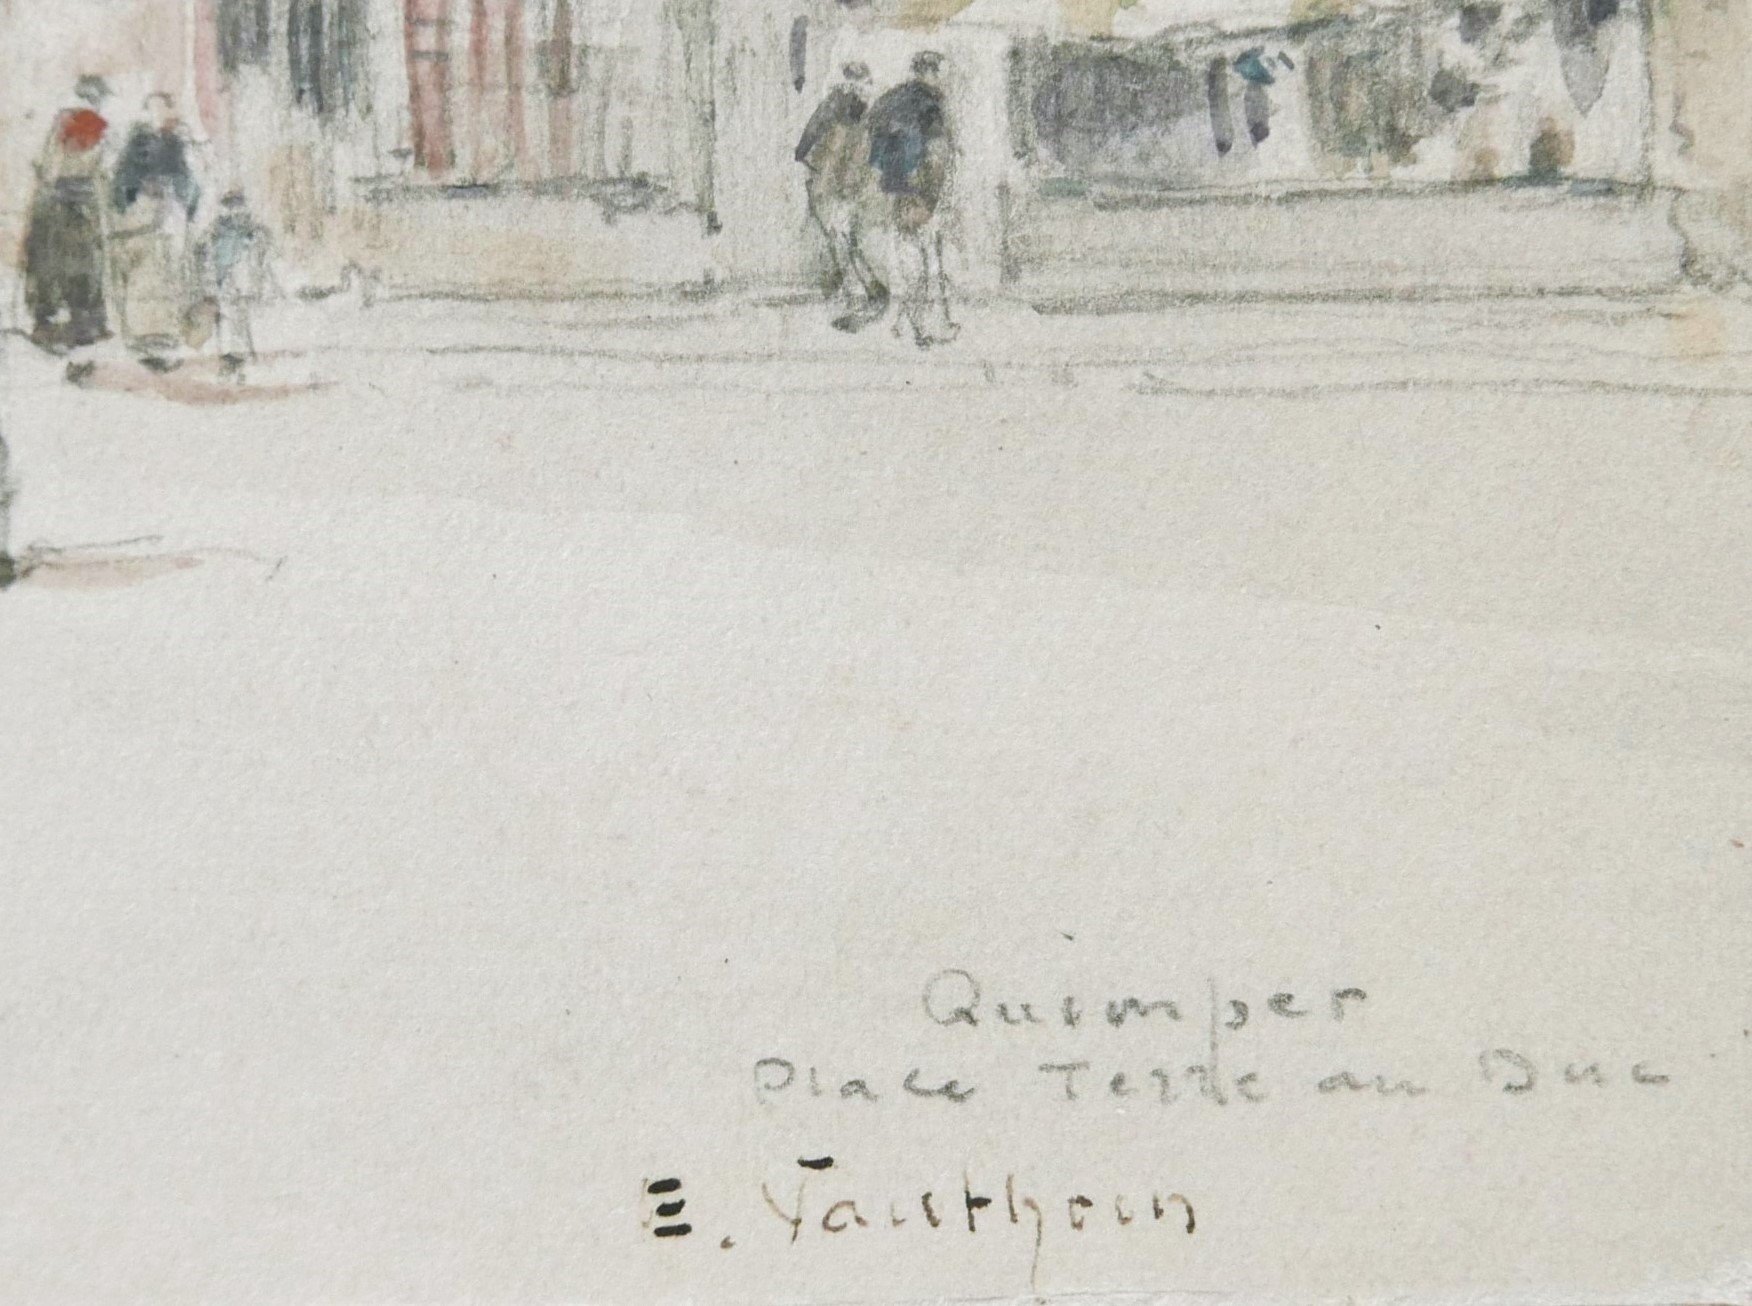 Quimper
Place Terre au Duc
E. Vauthrin